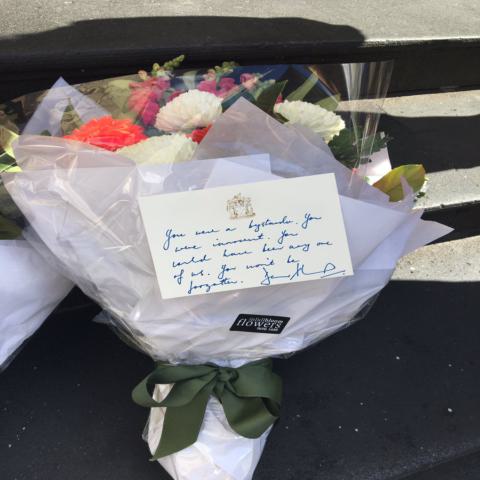 You were a bystander. You
were innocent. You
could have been any one
of us. You won't be
forgotten.
flowers